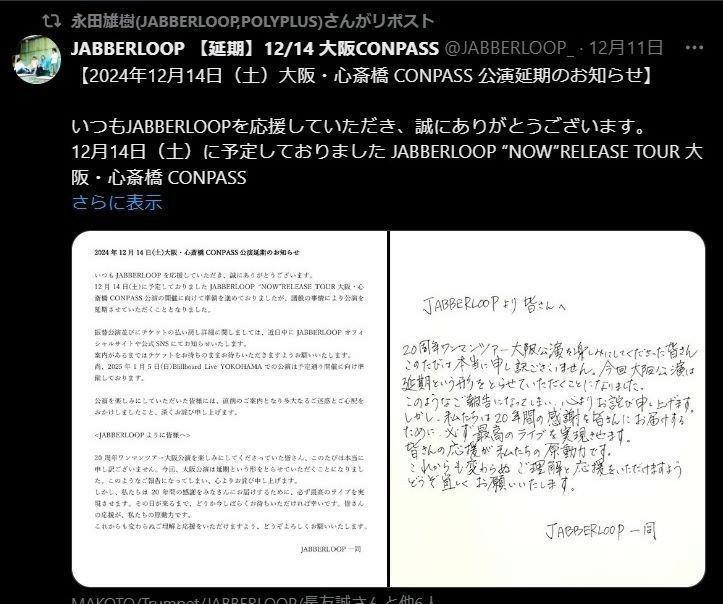 永田雄樹(JABBERLOOP,POLYPLUS)さんがリポスト
JABBERLOOP 【延期】12/14 大阪CONPASS @JABBERLOOP_ · 12月11日 ···
【2024年12月14日（土）大阪・心斎橋 CONPASS 公演延期のお知らせ】
いつもJABBERLOOPを応援していただき、誠にありがとうございます。
12月14日（土）に予定しておりました JABBERLOOP ”NOW”RELEASE TOUR 大
阪・心斎橋 CONPASS
さらに表示
2024 年 12 月 14 日(土)大阪・心斎橋 CONPASS 公演延期のお知らせ
いつも JABBERLOOP を応援していただき、誠にありがとうございます。
12 月 14 日(土)に予定しておりました JABBERLOOP “NOW”RELEASE TOUR 大阪・心
斎橋 CONPASS 公演の開催に向けて準備を進めておりましたが、諸般の事情により公演を
延期させていただくこととなりました。
振替公演並びにチケットの払い戻し詳細に関しましては、近日中に JABBERLOOP オフィ
シャルサイトや公式 SNS にてお知らせいたします。
案内があるまではチケットをお持ちのままお待ちいただきますようお願いいたします。
尚、2025 年 1 月 5 日(日)Billboard Live YOKOHAMA での公演は予定通り開催に向け準
備しております。
公演を楽しみにしていただいた皆様には、直前のご案内となり多大なるご迷惑とご心配を
おかけしましたこと、深くお詫び申し上げます。
<JABBERLOOP ように皆様へ>
20 周年ワンマンツアー大阪公演を楽しみにしてくださっていた皆さん、このたびは本当に
申し訳ございません。今回、大阪公演は延期という形をとらせていただくことになりまし
た。このようなご報告になってしまい、心よりお詫び申し上げます。
しかし、私たちは 20 年間の感謝をみなさんにお届けするために、必ず最高のライブを実
現させます。その日が来るまで、どうか今しばらくお待ちいただければ幸いです。皆さん
の応援が、私たちの原動力です。
これからも変わらぬご理解と応援をいただけますよう、どうぞよろしくお願いいたします。
JABBERLOOP 一同
JABBERLOOPより 皆さんへ
20周年ワンマンツアー大阪公演を楽しみにしてくださった皆さん
このたびは本当に申し訳ございません。今回大阪公演は
延期という形をとらせていただくことになりました。
このようなご報告になってしまい、心よりお詫び申し上げます。
しかし、私たちは20年間の感謝を皆さんにお届けする
ために、必ず最高のライブを実現させます。
皆さんの応援が私たちの原動力です。
これからも変わらぬ ご理解と応援をいただけますよう
どうぞ宜しくお願いいたします。
JABBERLOOP 一同
MAKOTO/Trumpet/JABBERLOOP/長友誠さんと他6人